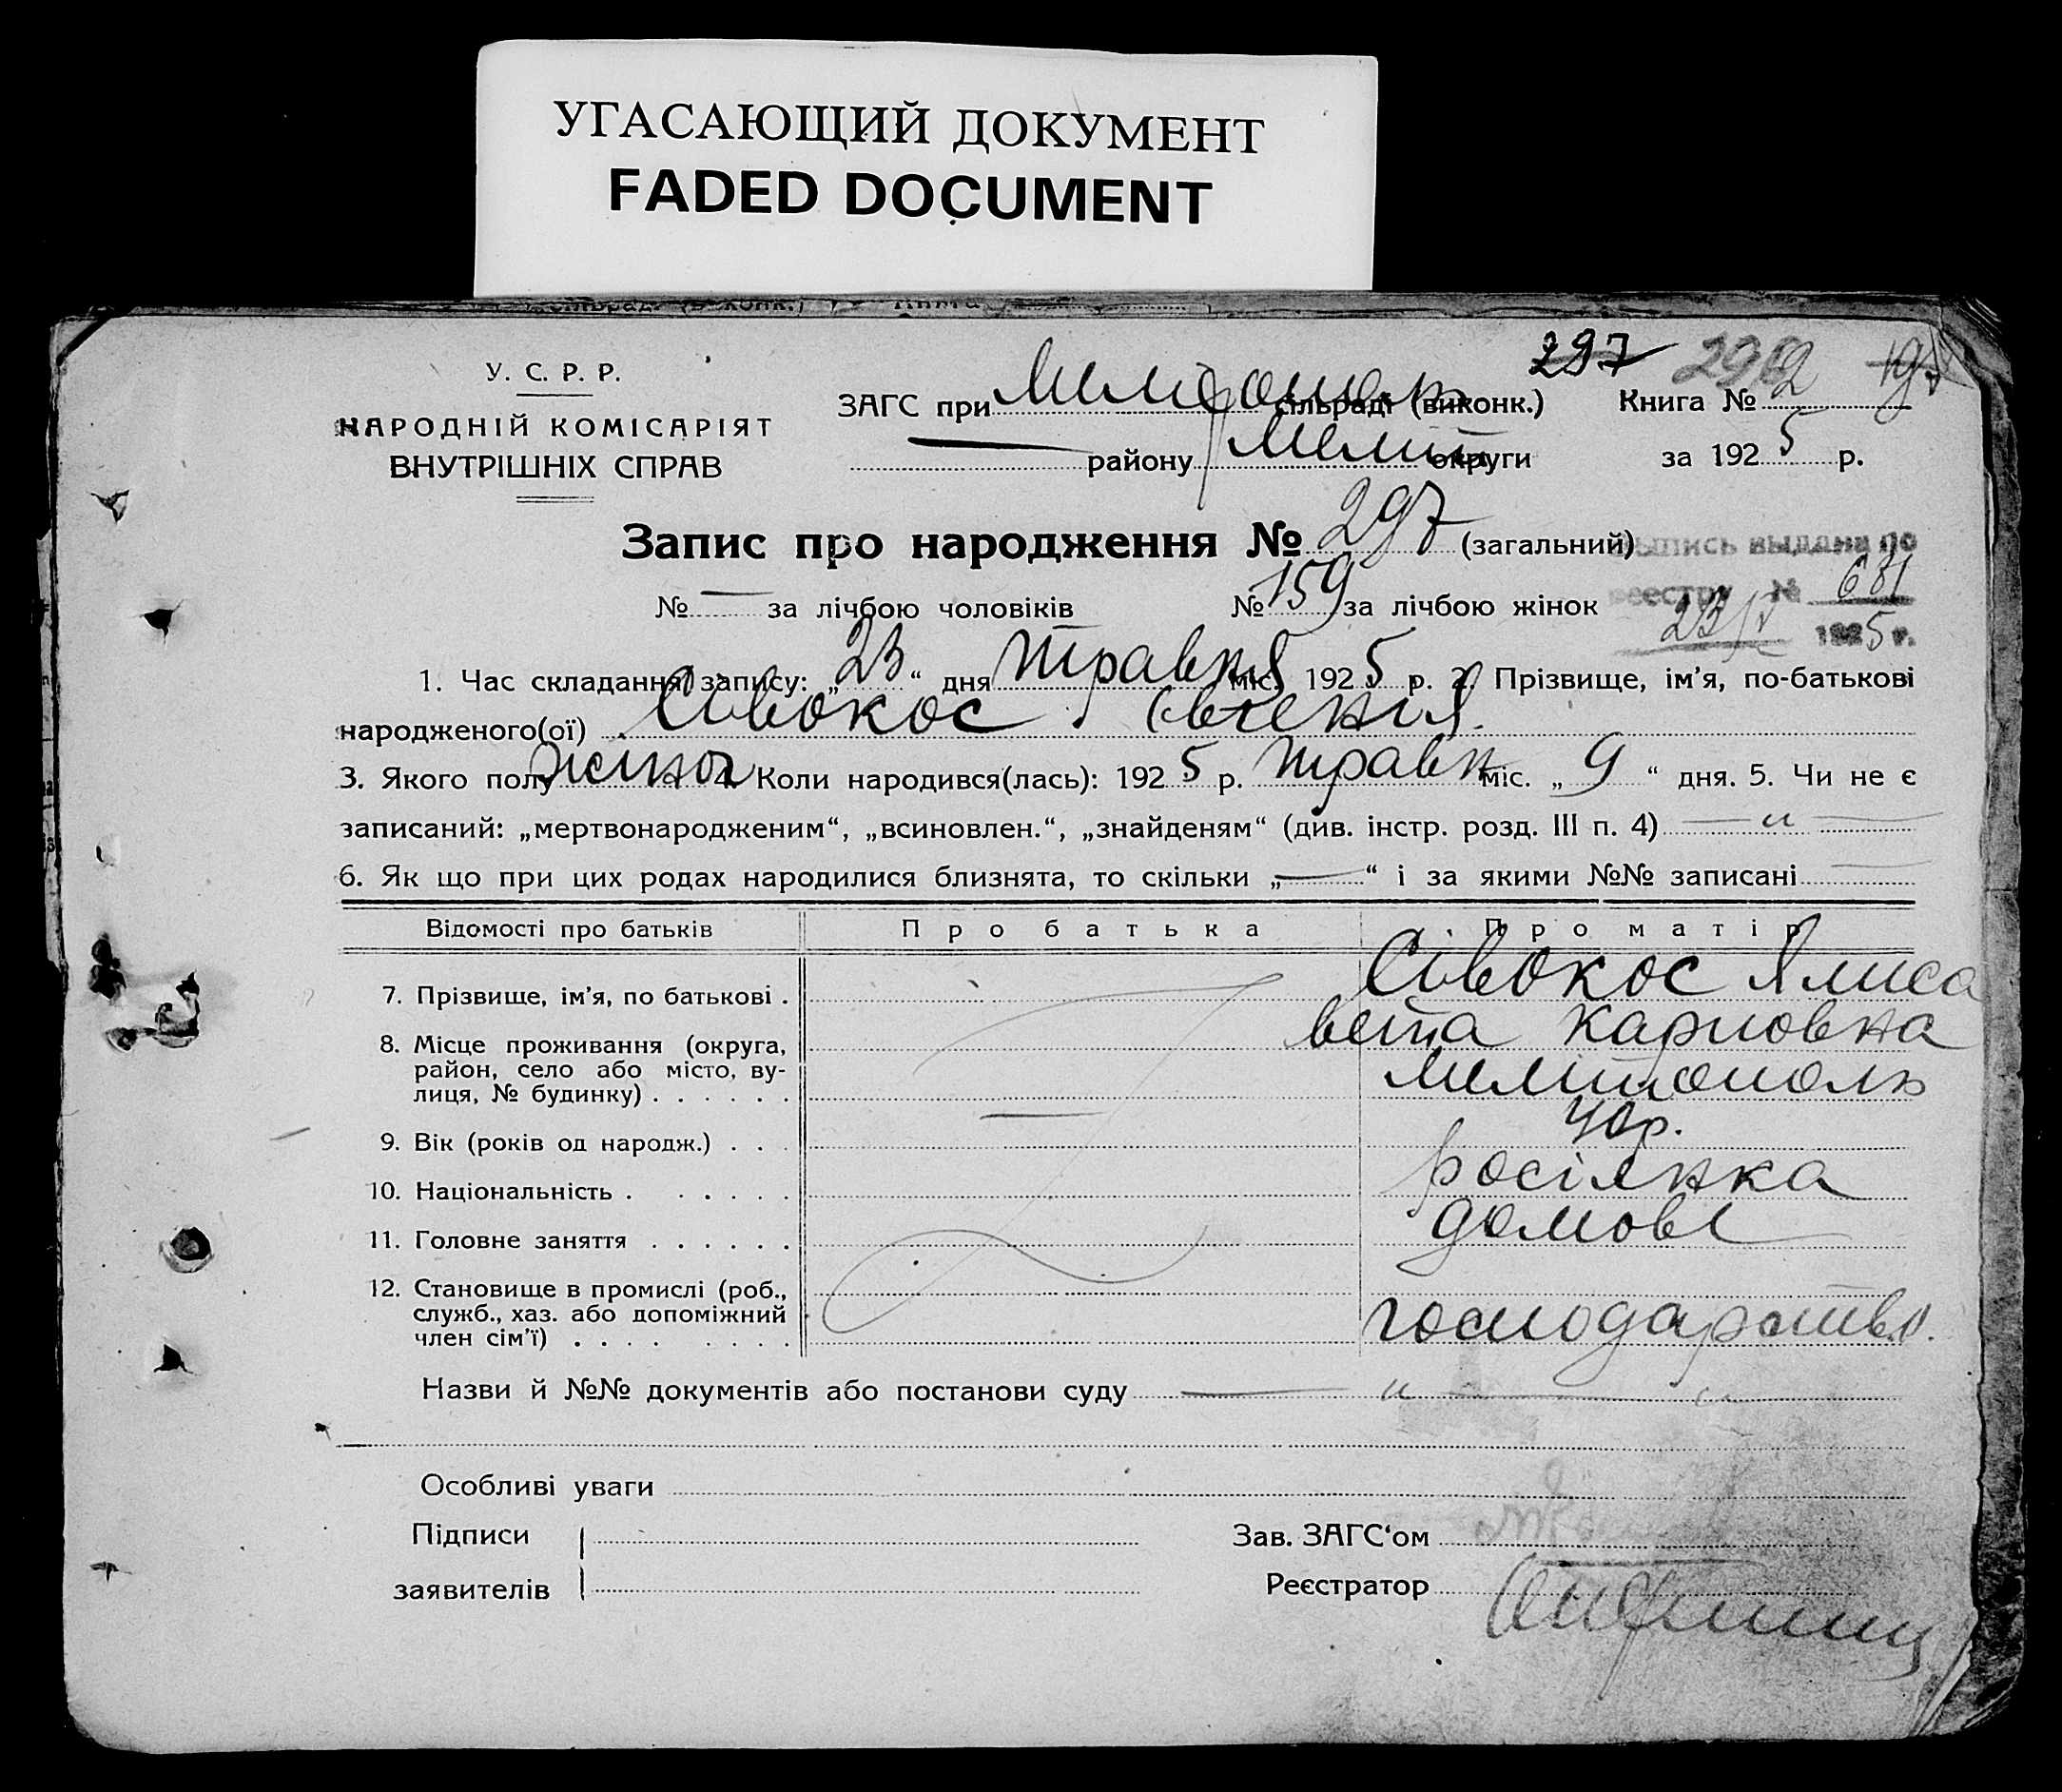 УГАСАЮЩИЙ ДОКУМЕНТ
FADED DOCUMENT
У. С. Р. Р.
НАРОДНІЙ КОМІСАРІЯТ
ВНУТРІШНІХ СПРАВ
297
ЗАГС при сільраді (виконк.) Книга № 2
району Меліт округи за 1925 р.
Запис про народження № 297 (загальний)
выпись выдана по
реестру № 681
23/V 1925 г.
№ — за лічбою чоловіків № 159 за лічбою жінок
1. Час складання запису: „23“ дня травня міс. 1925 р. 2. Прізвище, ім’я, по-батькові
народженого(ої) Сивокос Євгенія
3. Якого полу жіноч 4. Коли народився(лась): 1925 р. травн міс. „9“ дня. 5. Чи не є
записаний: „мертвонародженим“, „всиновлен.“, „знайденям“ (див. інстр. розд. III п. 4) — „ —
6. Як що при цих родах народилися близнята, то скільки „—“ і за якими №№ записані —
Відомості про батьків Про батька Про матір
7. Прізвище, ім’я, по батькові . Сивокос Ялиса
вета Карповна
8. Місце проживання (округа,
район, село або місто, ву-
лиця, № будинку) . . . . . . Мелітополь
9. Вік (років од народж.) . . . — 40 р.
10. Національність . . . . . . росіянка
11. Головне заняття . . . . . . домове
12. Становище в промислі (роб.,
служб., хаз. або допоміжний
член сім’ї) . . . . . . . . господарство.
Назви й №№ документів або постанови суду — „ — „
Особливі уваги
Підписи
заявителів
Зав. ЗАГС‘ом
Реєстратор